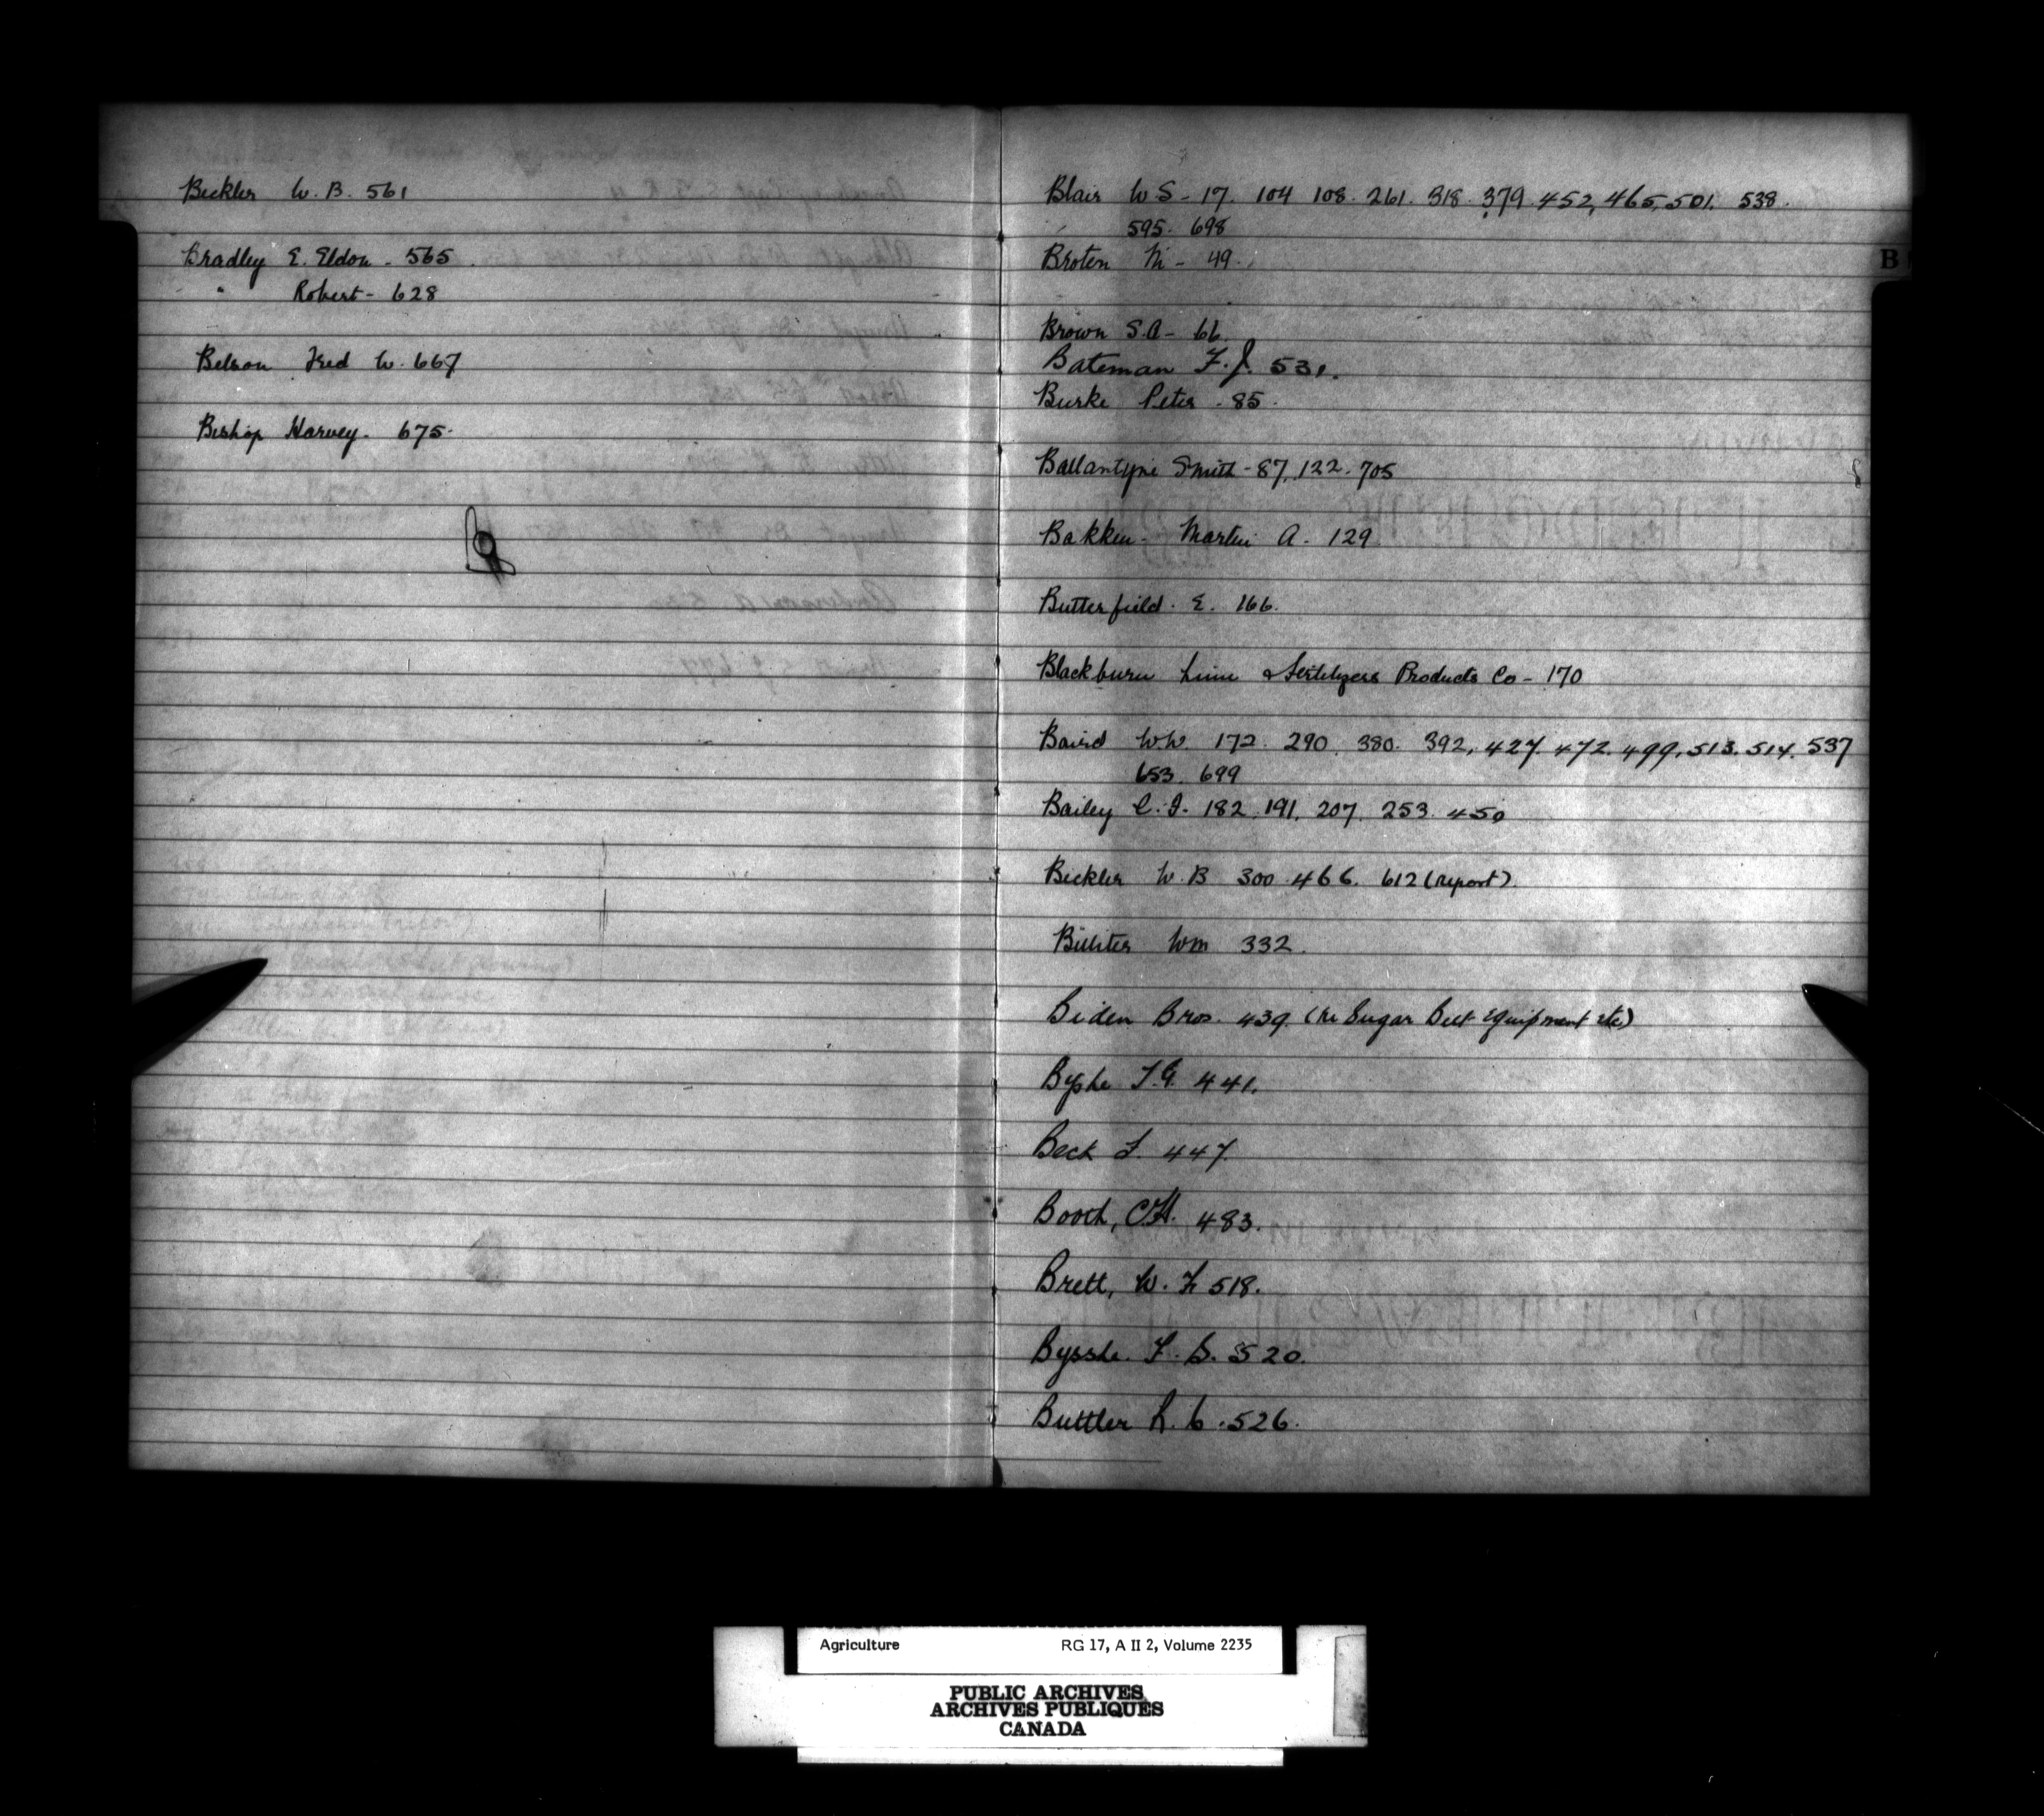 Beckler W. B. 561
Bradley E. Eldon - 565
" Robert - 628
Belson Fred W. 667
Bishop Harvey - 675
Blair W S - 17. 104 108. 261. 318. 379. 452, 465, 501. 538.
595. 698
Broten M - 49.
B
Brown S.A - 66.
Bateman F. J. 531.
Burke Peter - 85.
Ballantyne Smith - 87, 122. 705
Bakken - Martin A. 129
Butterfield. E. 166.
Blackburn Lime & Fertilyers Products Co - 170
Baird W.W. 172. 290. 380. 392, 427. 472. 499, 513. 514. 537
653. 699
Bailey C. F. 182, 191, 207. 253. 450
Beckler W. B 300 466. 612 (report).
Wm 332.
Beiden Bros. 439. (re Sugar Beet Equipment etc)
Byshe F.G. 441.
Beck F. 447.
Booth, C.H. 483.
Brett, W. F 518.
Bysshe. F. S. 520.
Buttler R. C. 526.
Agriculture RG 17, A II 2, Volume 2235
PUBLIC ARCHIVES
ARCHIVES PUBLIQUES
CANADA